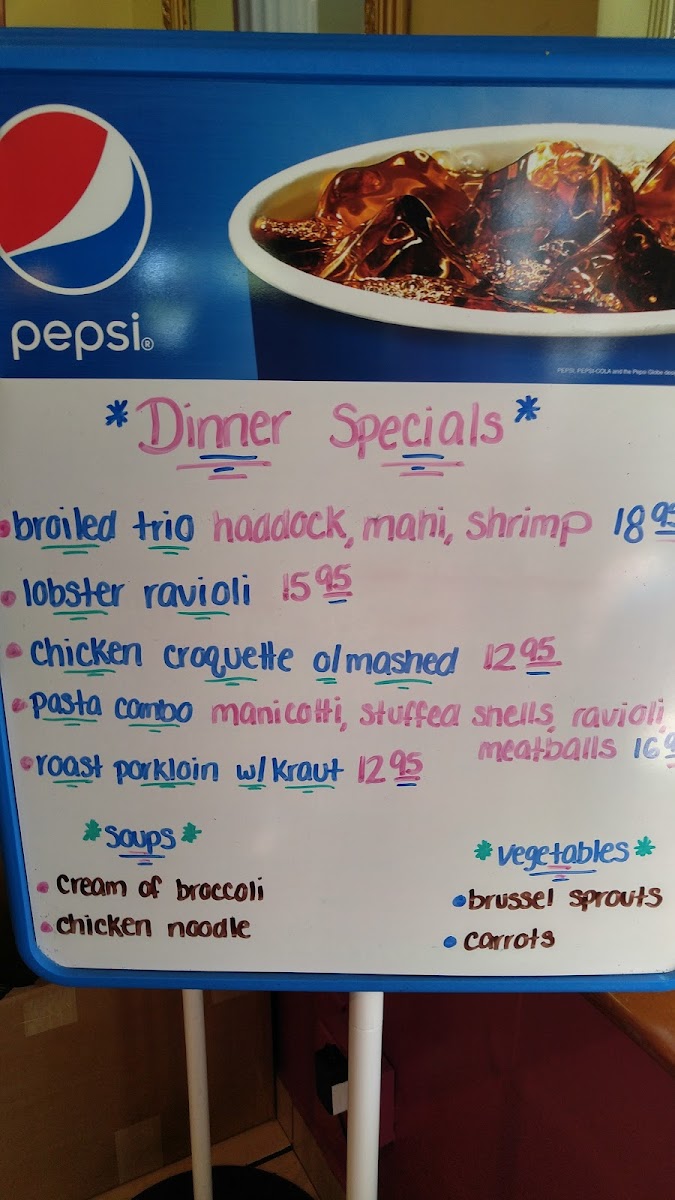 pepsi®
PEPSI, PEPSI-COLA and the Pepsi Globe
*Dinner Specials*
•broiled trio haddock, mahi, shrimp 18 95
•lobster ravioli 15 95
•chicken croquette o/mashed 12 95
•pasta combo manicotti, stuffed shells, ravioli,
meatballs 16
•roast porkloin w/kraut 12 95
*soups*
•cream of broccoli
•chicken noodle
*vegetables*
•brussel sprouts
•carrots